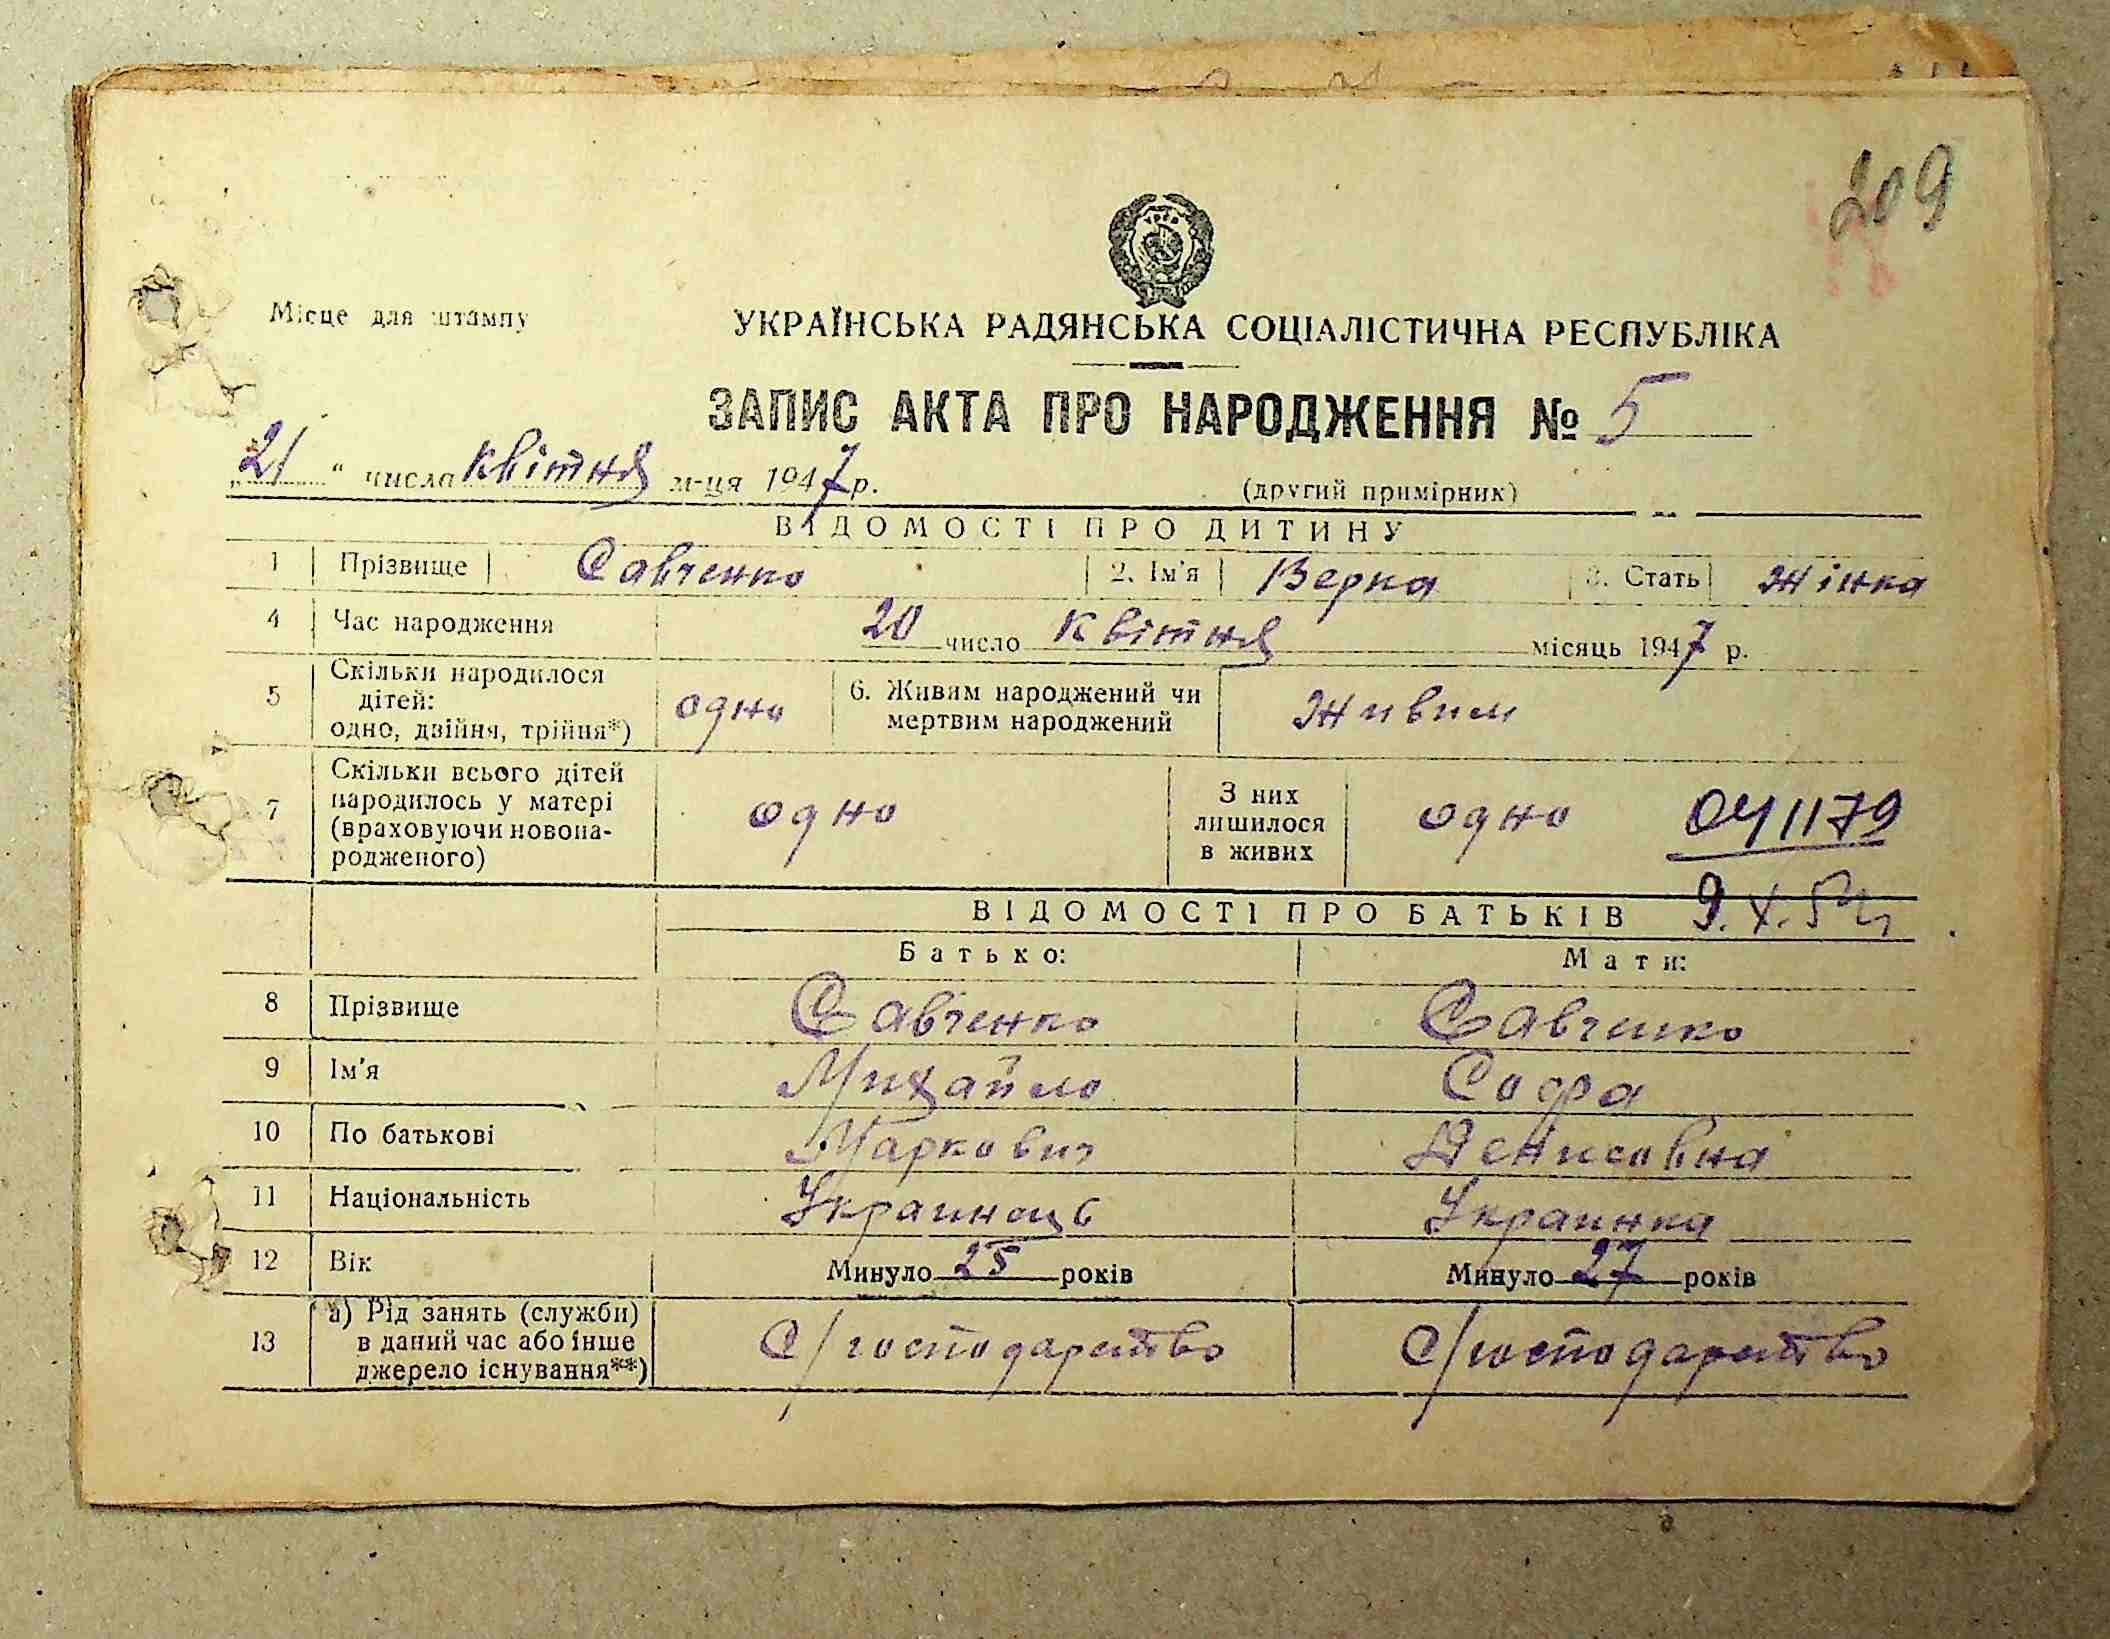 209
Місце для штампу
УКРАЇНСЬКА РАДЯНСЬКА СОЦІАЛІСТИЧНА РЕСПУБЛІКА
ЗАПИС АКТА ПРО НАРОДЖЕННЯ № 5
„21“ числа квітня м-ця 1947 р. (другий примірник)
ВІДОМОСТІ ПРО ДИТИНУ
1 Прізвище Савченко 2. Ім'я Верка 3. Стать жінка
4 Час народження 20 число квітня місяць 1947 р.
5 Скільки народилося дітей: одно, двійня, трійня*) одно 6. Живим народжений чи мертвим народжений живим
7 Скільки всього дітей народилось у матері (враховуючи новона-родженого) одно З них лишилося в живих одно 041179
ВІДОМОСТІ ПРО БАТЬКІВ 9.X.54
Батько: Мати:
8 Прізвище Савченко Савченко
9 Ім'я Михайло Софа
10 По батькові Маркович Денисовна
11 Національність Украинець Украинка
12 Вік Минуло 25 років Минуло 27 років
13 а) Рід занять (служби) в даний час або інше джерело існування**) С/господарство С/господарство